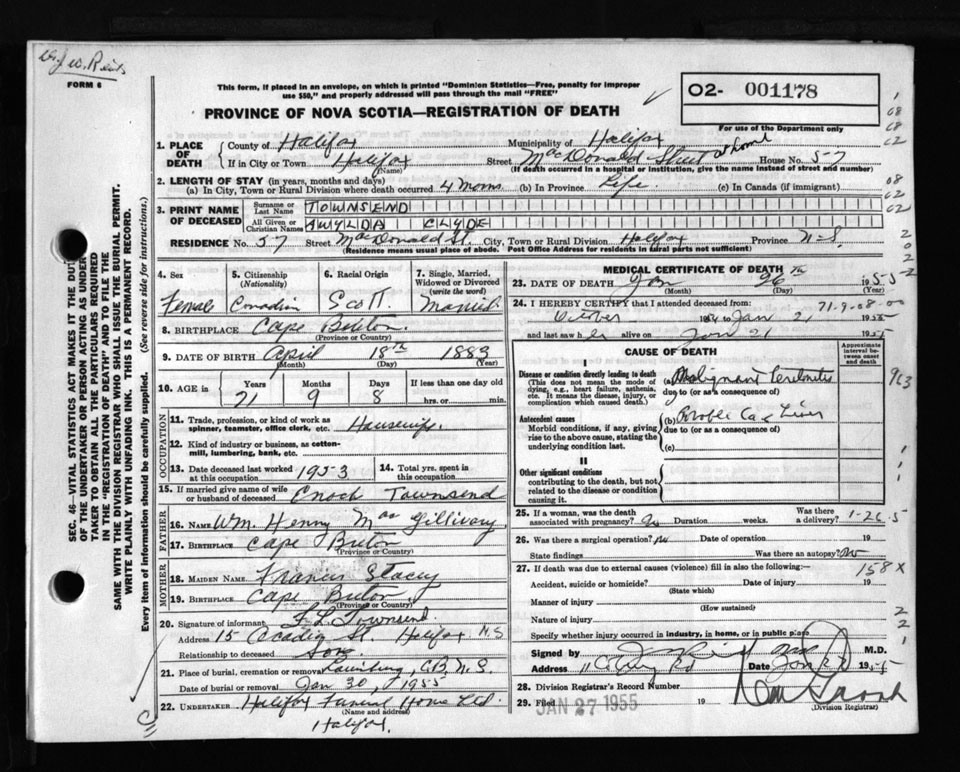 FORM 6
This form, if placed in an envelope, on which is printed "Dominion Statistics—Free, penalty for improper
use $50," and properly addressed will pass through the mail "FREE"
PROVINCE OF NOVA SCOTIA—REGISTRATION OF DEATH
O2- 001178
For use of the Department only
1. PLACE OF DEATH
County of Halifax Municipality of Halifax
If in City or Town Halifax (Name) Street MacDonald Street at home House No. 57
(If death occurred in a hospital or institution, give the name instead of street and number)
2. LENGTH OF STAY (in years, months and days)
(a) In City, Town or Rural Division where death occurred 4 Mons. (b) In Province Life. (c) In Canada (if immigrant)
3. PRINT NAME OF DECEASED
Surname or Last Name TOWNSEND
All Given or Christian Names CLYDE
RESIDENCE No. 57 Street MacDonald St. City, Town or Rural Division Halifax Province N-S.
(Residence means usual place of abode. Post Office Address for residents in rural parts not sufficient)
4. Sex Female
5. Citizenship (Nationality) Canadian
6. Racial Origin Scott.
7. Single, Married, Widowed or Divorced (write the word) Married.
8. BIRTHPLACE Cape Breton. (Province or Country)
9. DATE OF BIRTH April (Month) 18th 1883 (Year)
10. AGE in Years 71 Months 9 Days 8 If less than one day old hrs. or min.
OCCUPATION
11. Trade, profession, or kind of work as spinner, teamster, office clerk, etc. Housewife.
12. Kind of industry or business, as cotton-mill, lumbering, bank, etc.
13. Date deceased last worked at this occupation 1953
14. Total yrs. spent in this occupation
15. If married give name of wife or husband of deceased Enoch Townsend
FATHER
16. NAME Wm. Henry MacGillivary
17. BIRTHPLACE Cape Breton (Province or Country)
MOTHER
18. MAIDEN NAME Francis Stacey
19. BIRTHPLACE Cape Breton. (Province or Country)
20. Signature of informant F. L. Townsend.
Address 15 Acadia St. Halifax N.S
Relationship to deceased Son.
21. Place of burial, cremation or removal Louisburg, C.B. N.S.
Date of burial or removal Jan 30, 1955
22. UNDERTAKER Halifax Funeral Home Ltd. (Name and address)
Halifax.
MEDICAL CERTIFICATE OF DEATH
23. DATE OF DEATH Jan (Month) 26th (Day) 1955 (Year)
24. I HEREBY CERTIFY that I attended deceased from 71-9-08-00
October 1954 to Jan 21 1955
and last saw her alive on Jan 21 1955
CAUSE OF DEATH
Approximate interval between onset and death
I
Disease or condition directly leading to death
(This does not mean the mode of dying, e.g., heart failure, asthenia, etc. It means the disease, injury, or complication which caused death.)
(a) Malignant
due to (or as a consequence of)
Antecedent causes
Morbid conditions, if any, giving rise to the above cause, stating the underlying condition last.
(b) Probble Ca Liver
due to (or as a consequence of)
(c)
II
Other significant conditions
contributing to the death, but not related to the disease or condition causing it.
25. If a woman, was the death associated with pregnancy? No Duration weeks. Was there a delivery? 1-26-5
26. Was there a surgical operation? No Date of operation 19
State findings Was there an autopsy? No
27. If death was due to external causes (violence) fill in also the following:— 158 X
Accident, suicide or homicide? (State which) Date of injury 19
Manner of injury (How sustained)
Nature of injury
Specify whether injury occurred in industry, in home, or in public place
Signed by M.D.
Address Date Jan 1955
28. Division Registrar's Record Number
29. Filed JAN 27 1955 19
(Division Registrar)
SEC. 46—VITAL STATISTICS ACT MAKES IT THE DUTY
OF THE UNDERTAKER OR PERSON ACTING AS UNDER-
TAKER TO OBTAIN ALL THE PARTICULARS REQUIRED
IN THE "REGISTRATION OF DEATH" AND TO FILE THE
SAME WITH THE DIVISION REGISTRAR WHO SHALL ISSUE THE BURIAL PERMIT.
WRITE PLAINLY WITH UNFADING INK. THIS IS A PERMANENT RECORD.
Every item of information should be carefully supplied. (See reverse side for instructions.)